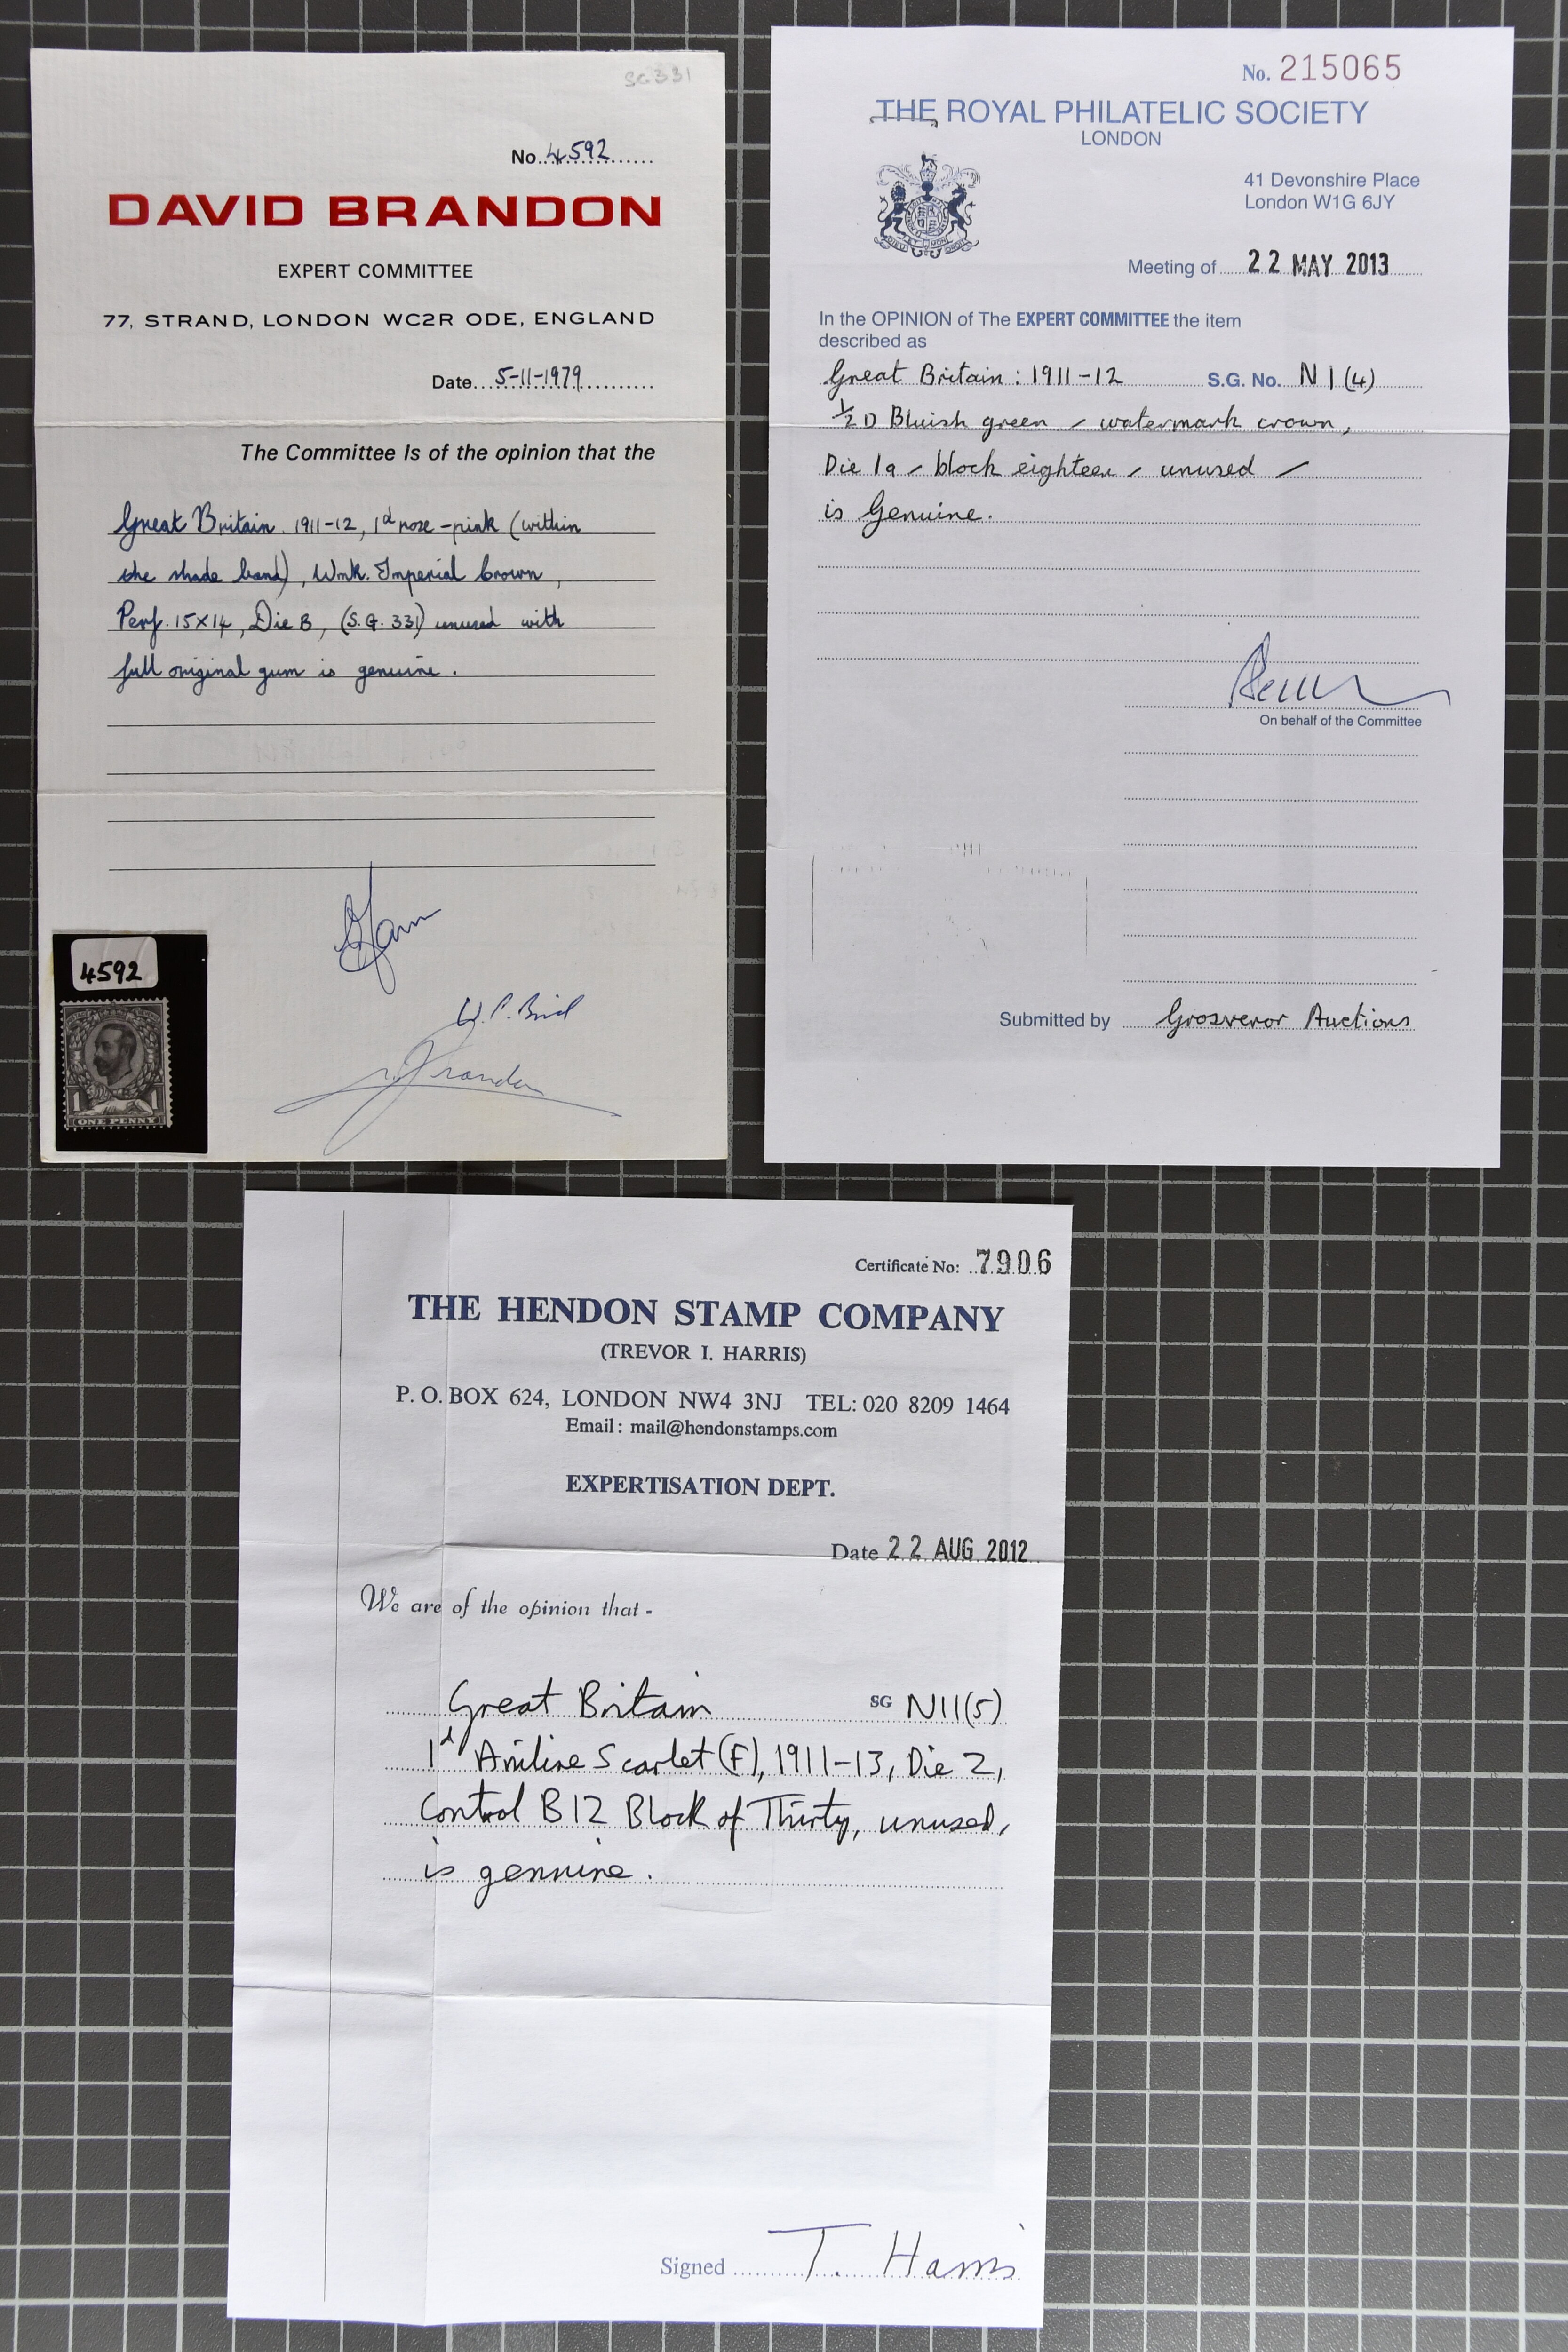 SG331
No. 4592
DAVID BRANDON
EXPERT COMMITTEE
77, STRAND, LONDON WC2R ODE, ENGLAND
Date. 5-11-1979
The Committee Is of the opinion that the
Great Britain 1911-12, 1d rose-pink (within
the shade band), Wmk. Imperial Crown,
Perf. 15x14, Die B, (S.G. 331) unused with
full original gum is genuine.
W.P. Bird
Brandon
4592
1 1
ONE PENNY
No. 215065
THE ROYAL PHILATELIC SOCIETY
LONDON
41 Devonshire Place
London W1G 6JY
Meeting of 22 MAY 2013
In the OPINION of The EXPERT COMMITTEE the item
described as
Great Britain: 1911-12 S.G. No. N1(4)
½D Bluish green - watermark crown,
Die 1a - block eighteen - unused -
is Genuine.
On behalf of the Committee
Submitted by Grosvenor Auctions
Certificate No: 7906
THE HENDON STAMP COMPANY
(TREVOR I. HARRIS)
P. O. BOX 624, LONDON NW4 3NJ TEL: 020 8209 1464
Email: mail@hendonstamps.com
EXPERTISATION DEPT.
Date 22 AUG 2012
We are of the opinion that -
Great Britain SG N11(5)
1d Aniline Scarlet (F), 1911-13, Die 2,
Control B12 Block of Thirty, unused,
is genuine.
Signed T. Harris